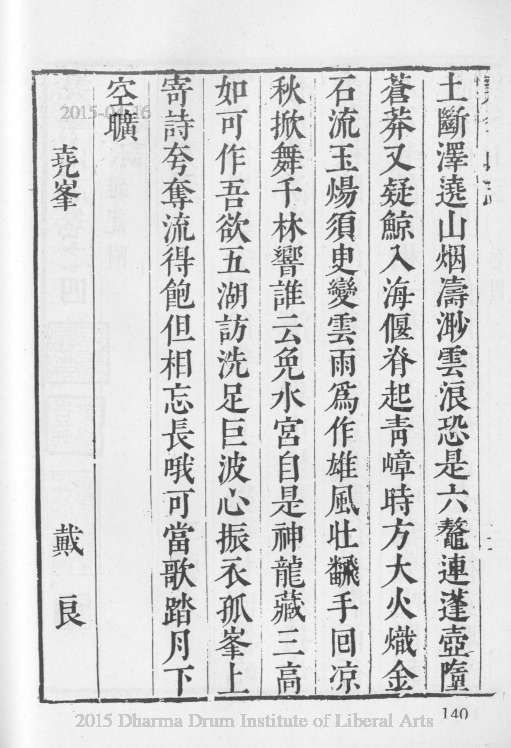 土斷澤遶山烟濤渺雲浪恐是六鼇連蓬壺墮
蒼莽又疑鯨入海偃脊起靑嶂時方大火熾金
石流玉煬須臾變雲雨爲作雄風壯飜手囘凉
秋掀舞千林響誰云免水宮自是神龍藏三高
如可作吾欲五湖訪洗足巨波心振衣孤峯上
寄詩夸奪流得飽但相忘長哦可當歌踏月下
空曠
堯峯 戴良
140
2015-04-16
2015 Dharma Drum Institute of Liberal Arts